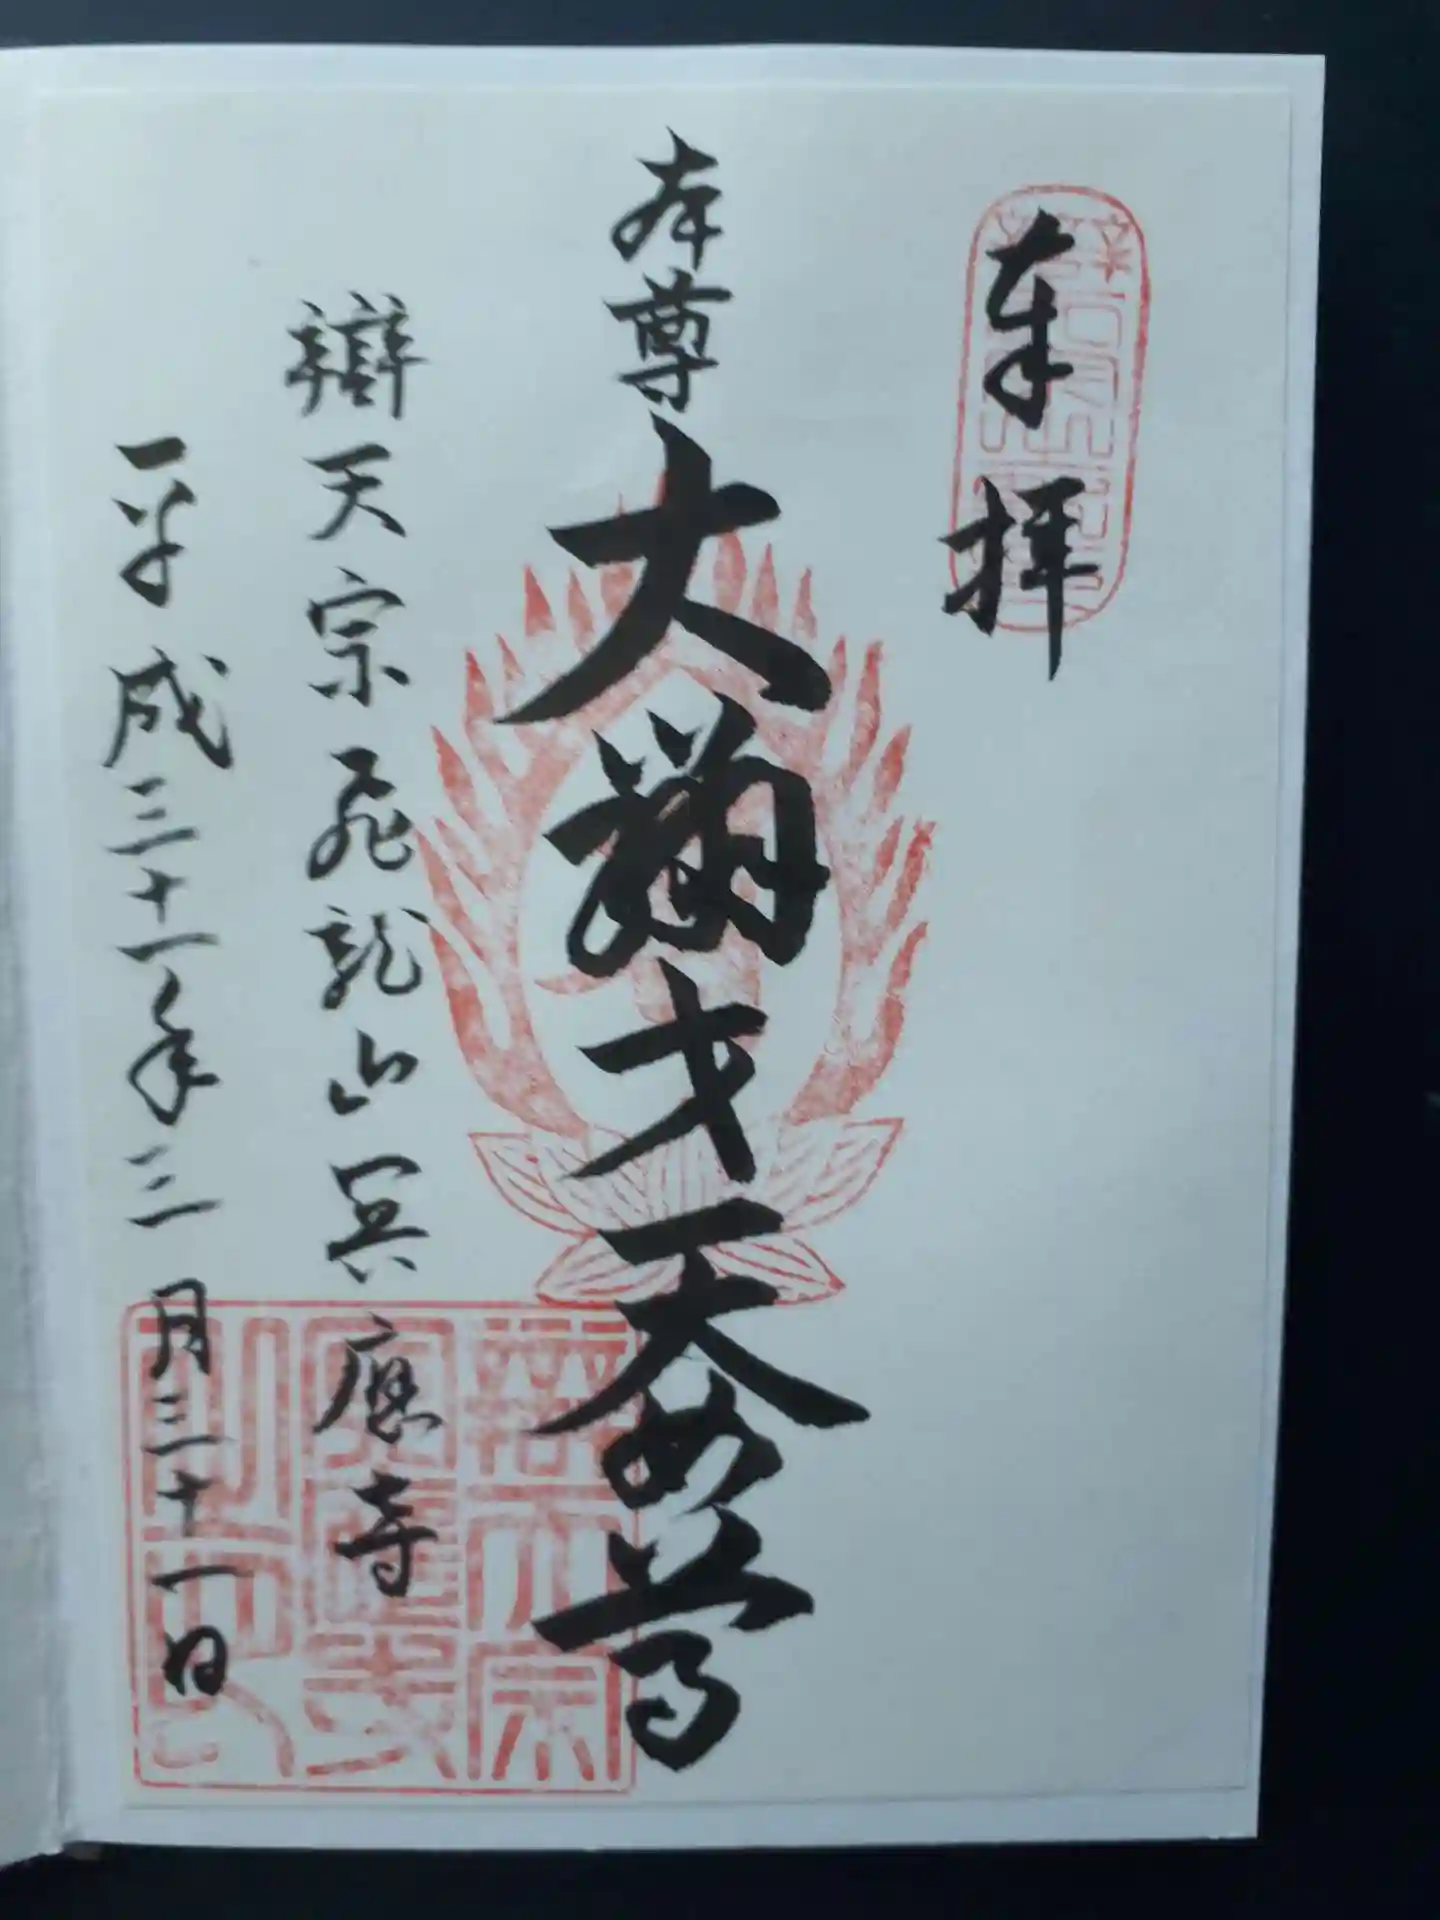 奉拝
本尊
大辯才天女尊
辯天宗飛龍山冥應寺
平成三十一年三月三十一日